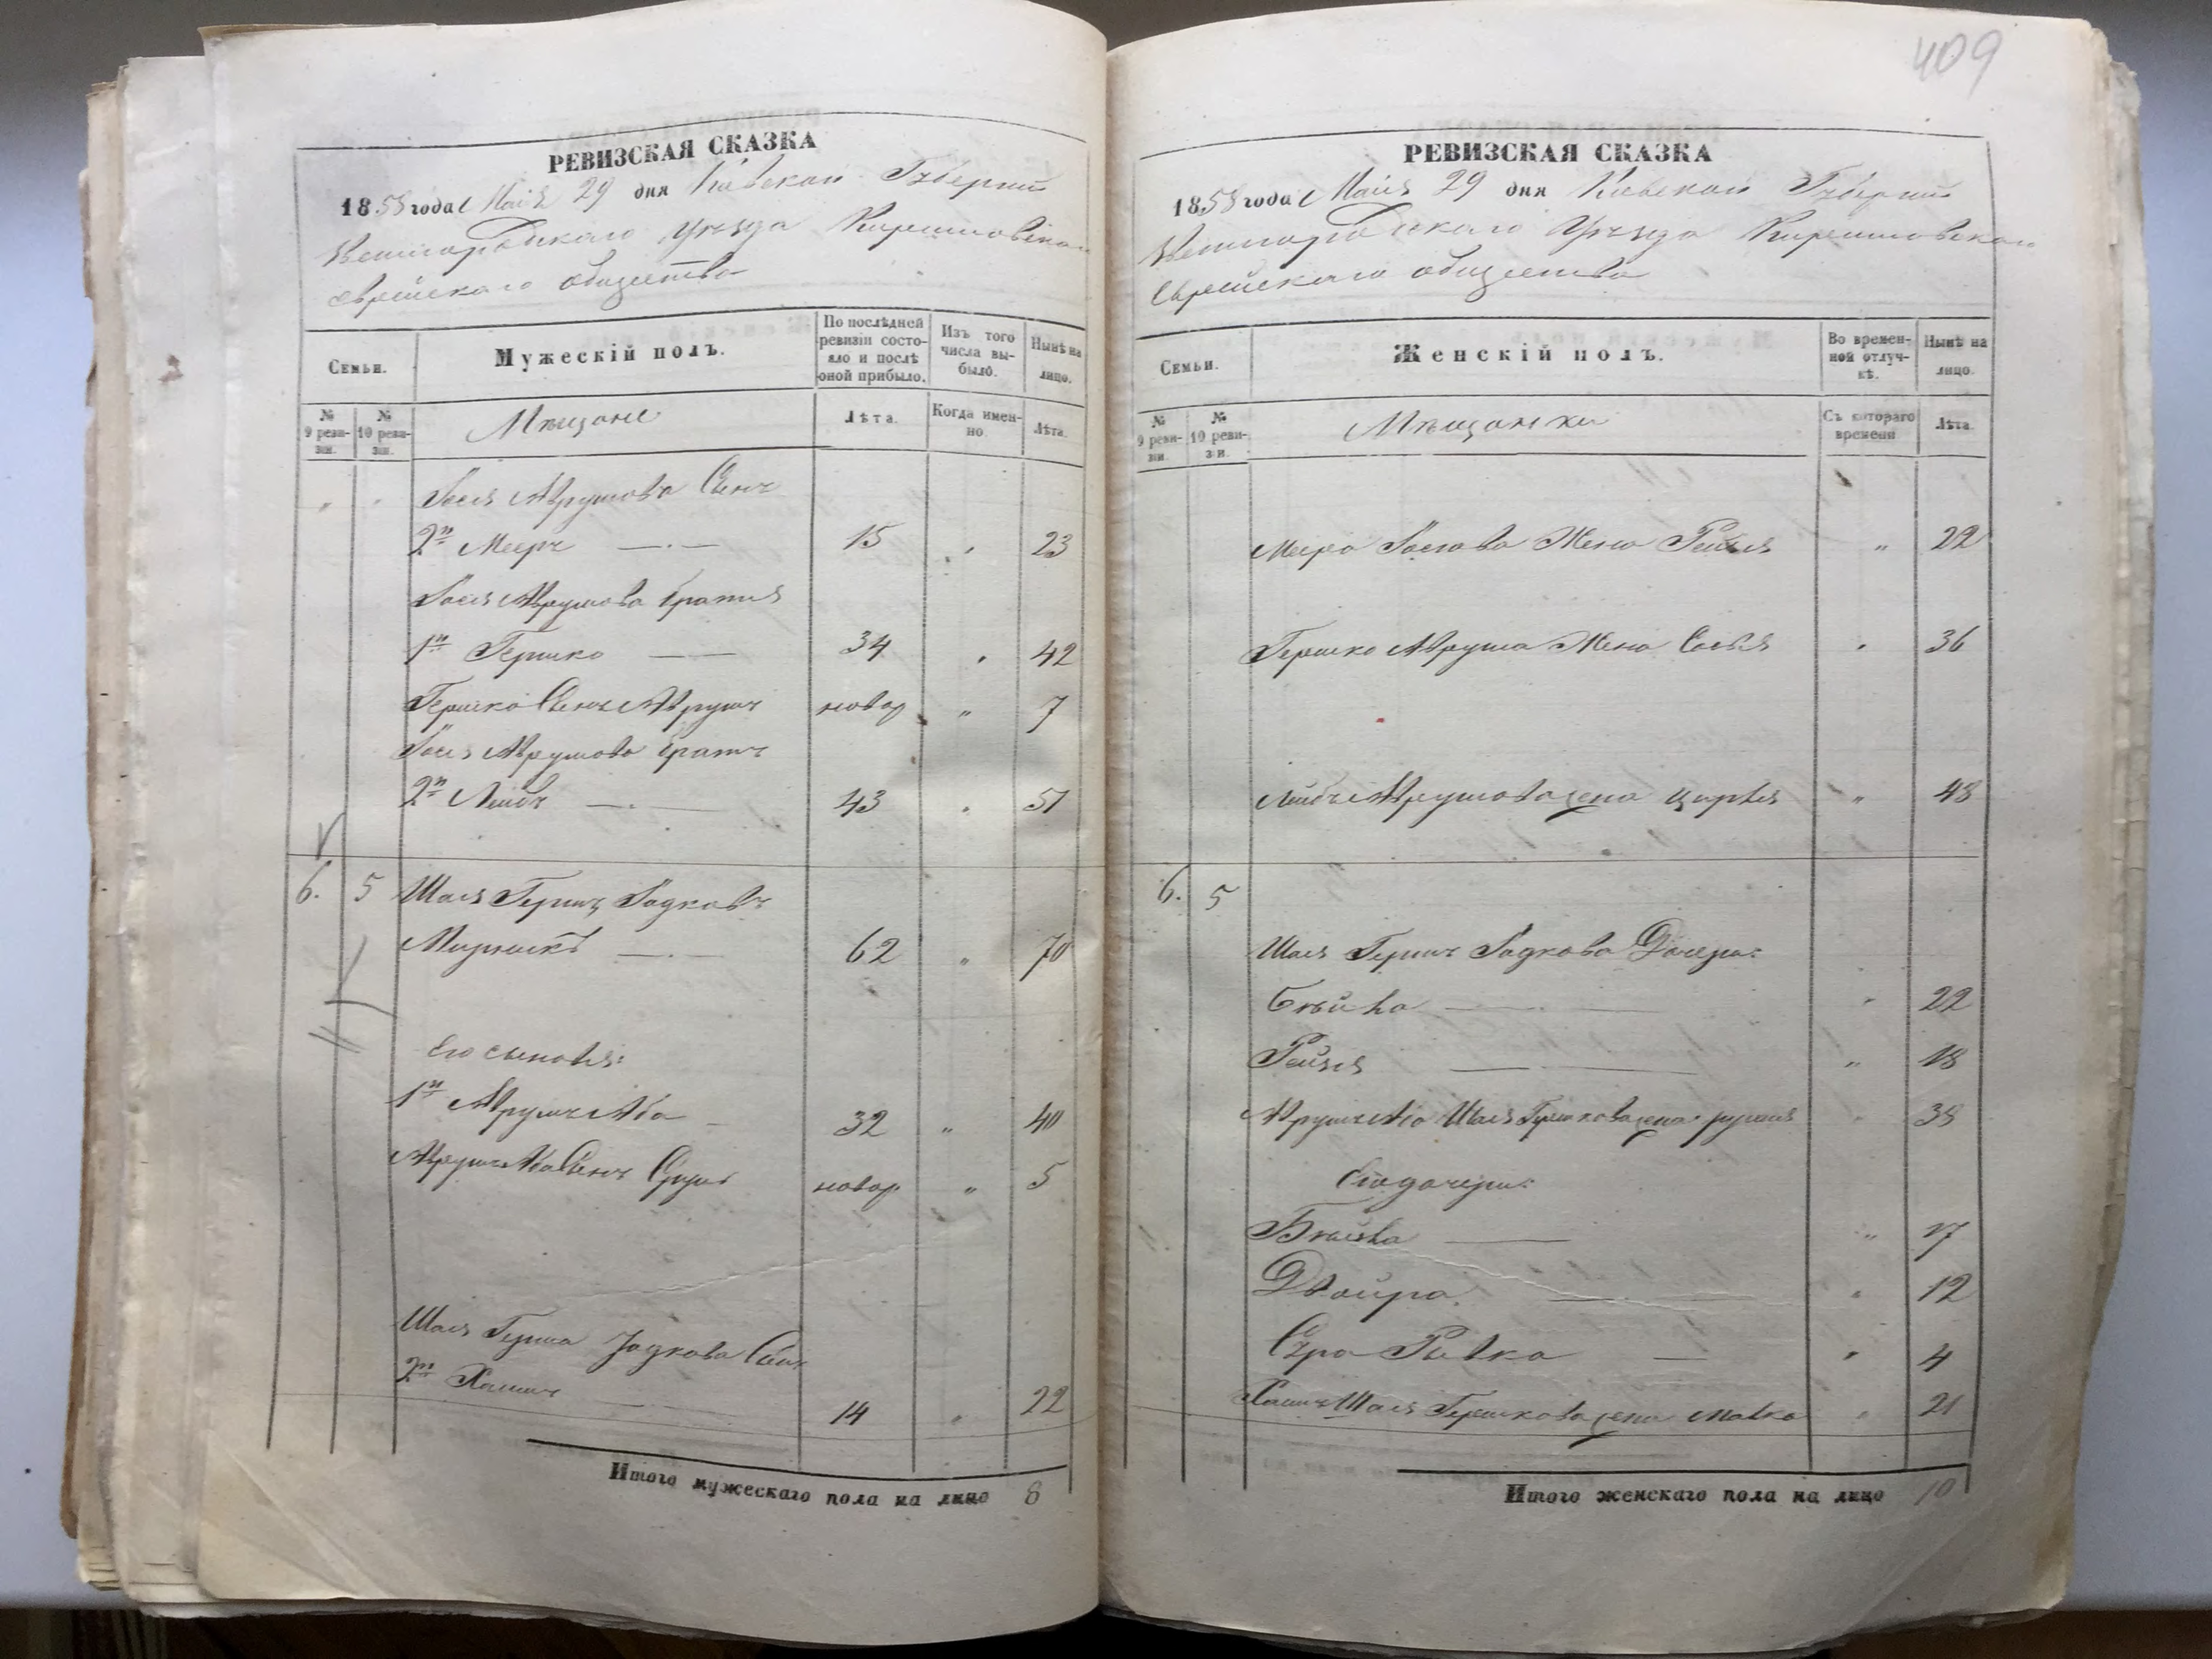 РЕВИЗСКАЯ СКАЗКА
1858 года Маія 29 дня Кіевской Губерніи
уѣзда
еврейскаго общества
Семьи.
Мужескій полъ.
По послѣдней ревизіи состояло и послѣ оной прибыло.
Изъ того числа выбыло.
Нынѣ на лицо.
№ 9 ревизіи.
№ 10 ревизіи.
Мѣщане
Лѣта.
Когда именно
Лѣта.
Іося Аврумова Сынъ
2й Мееръ 15 " 23
Іося Аврумова братья
1й Гершко 34 " 42
Гершко Сынъ Аврумъ новор " 7
Іося Аврумова братъ
2й Лейбъ 43 " 51
6. 5 Шая Герш
62 " 70
Его сыновья:
1й Аврумъ Аба 32 " 40
Аврумъ Аба Сынъ новор " 5
Шая Герша Сынъ
2й Хаимъ 14 " 22
Итого мужескаго пола на лицо 8
409
РЕВИЗСКАЯ СКАЗКА
1858 года Маія 29 дня Кіевской Губерніи
уѣзда
Еврейскаго общества
Семьи.
Женскій полъ.
Во временной отлучкѣ.
Нынѣ на лицо.
№ 9 ревизіи.
№ 10 ревизіи.
Мѣщанки
Съ котораго времени
Лѣта.
Меера Іосіова Жена Рейзя " 22
Гершко Аврума Жена " 36
Лейбъ Аврумова жена " 48
6. 5
Шая Гершъ Дочери:
" 22
Рейзя " 18
Аврумъ Аба Шая Гершкова жена " 38
Его дочери:
" 17
Двойра " 12
Сура Ривка " 4
Хаимъ Шая Гершкова жена Малка " 21
Итого женскаго пола на лицо 10